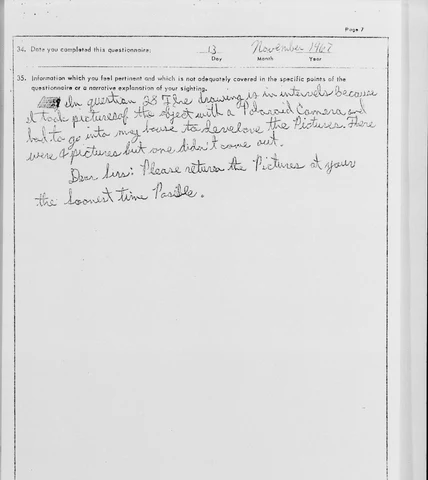 Page 7
34. Date you completed this questionnaire: 13 November 1967
Day Month Year
35. Information which you feel pertinent and which is not adequately covered in the specific points of the
questionnaire or a narrative explanation of your sighting.
In question 28 The drawing is in intervels because
I took pictures of the object with a Polaroid Camera and
had to go into my house to develove the Pictures. There
were 2 pictures but one didn't come out.
Dear Sirs: Please return the Pictures at your
the soonest time Posible.